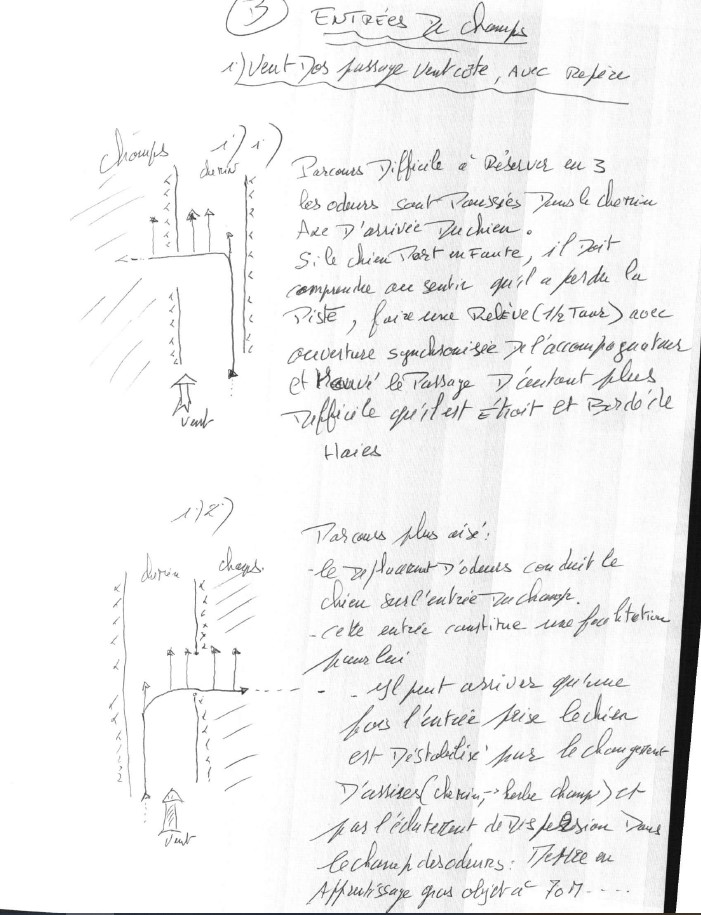 B) ENTRÉES De Champs
1) Vent Dos passage Vent côté, Avec Repère
Champs
1) 1)
chemin
Parcours Difficile à Réserver en 3
les odeurs sont Poussées Dans le chemin
Axe D'arrivée Du chien.
Si le chien Part en Faute, il Doit
comprendre ou sentir qu'il a perdu la
Piste, faire une Relève (1/2 Tour) avec
ouverture synchronisée De l'accompagnateur
et trouvé le Passage D'autant plus
Difficile qu'il est Étroit et Bordé de
Haies
Vent
1) 2)
chemin
champs.
Parcours plus aisé :
- le Déplacement D'odeurs conduit le
chien sur l'entrée Du champ.
- cette entrée constitue une facilitation
pour lui
- il peut arriver qu'une
fois l'entrée prise le chien
est Déstabilisé par le changement
D'assises (chemin, -> herbe champ) et
par l'éclatement de Dispersion Dans
le champ des odeurs : Mettre en
Apprentissage gros objet à 70 M ....
Vent